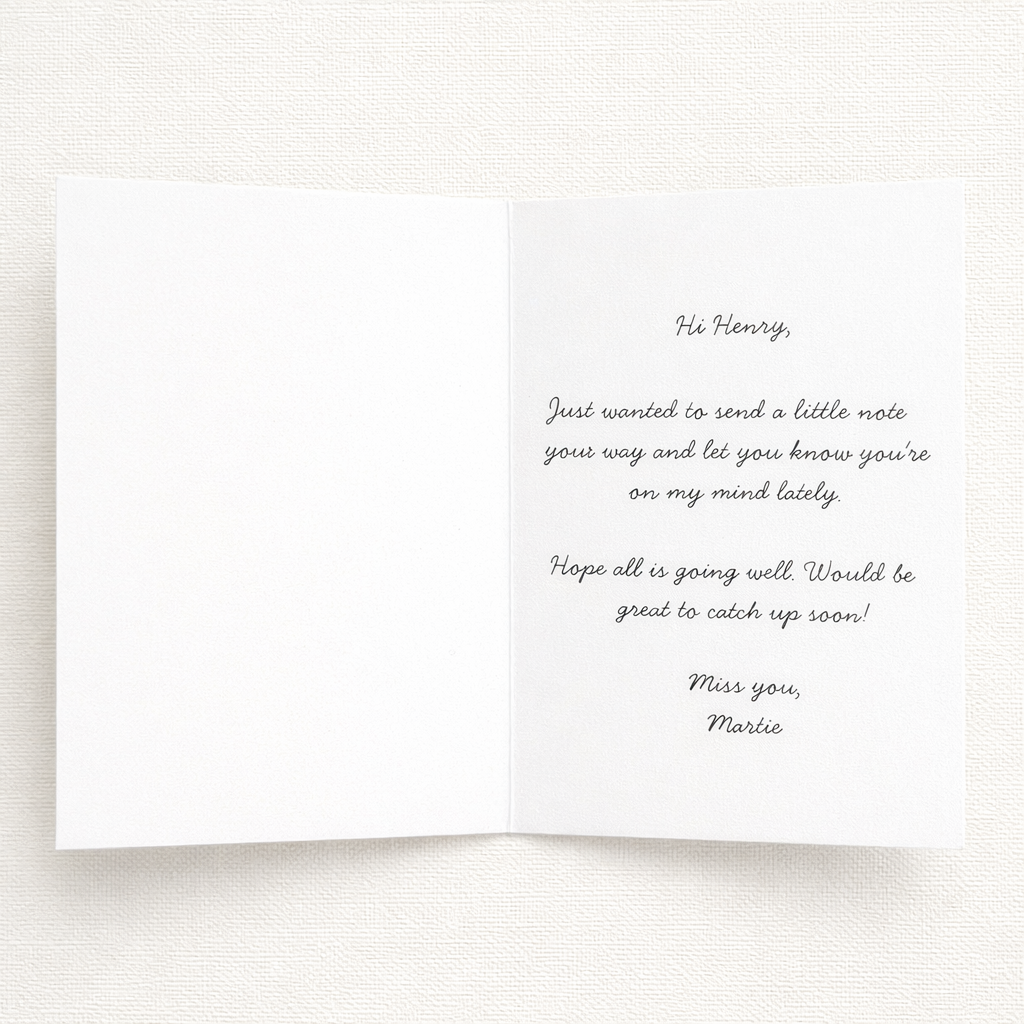 Hi Henry,
Just wanted to send a little note
your way and let you know you're
on my mind lately.
Hope all is going well. Would be
great to catch up soon!
Miss you,
Martie